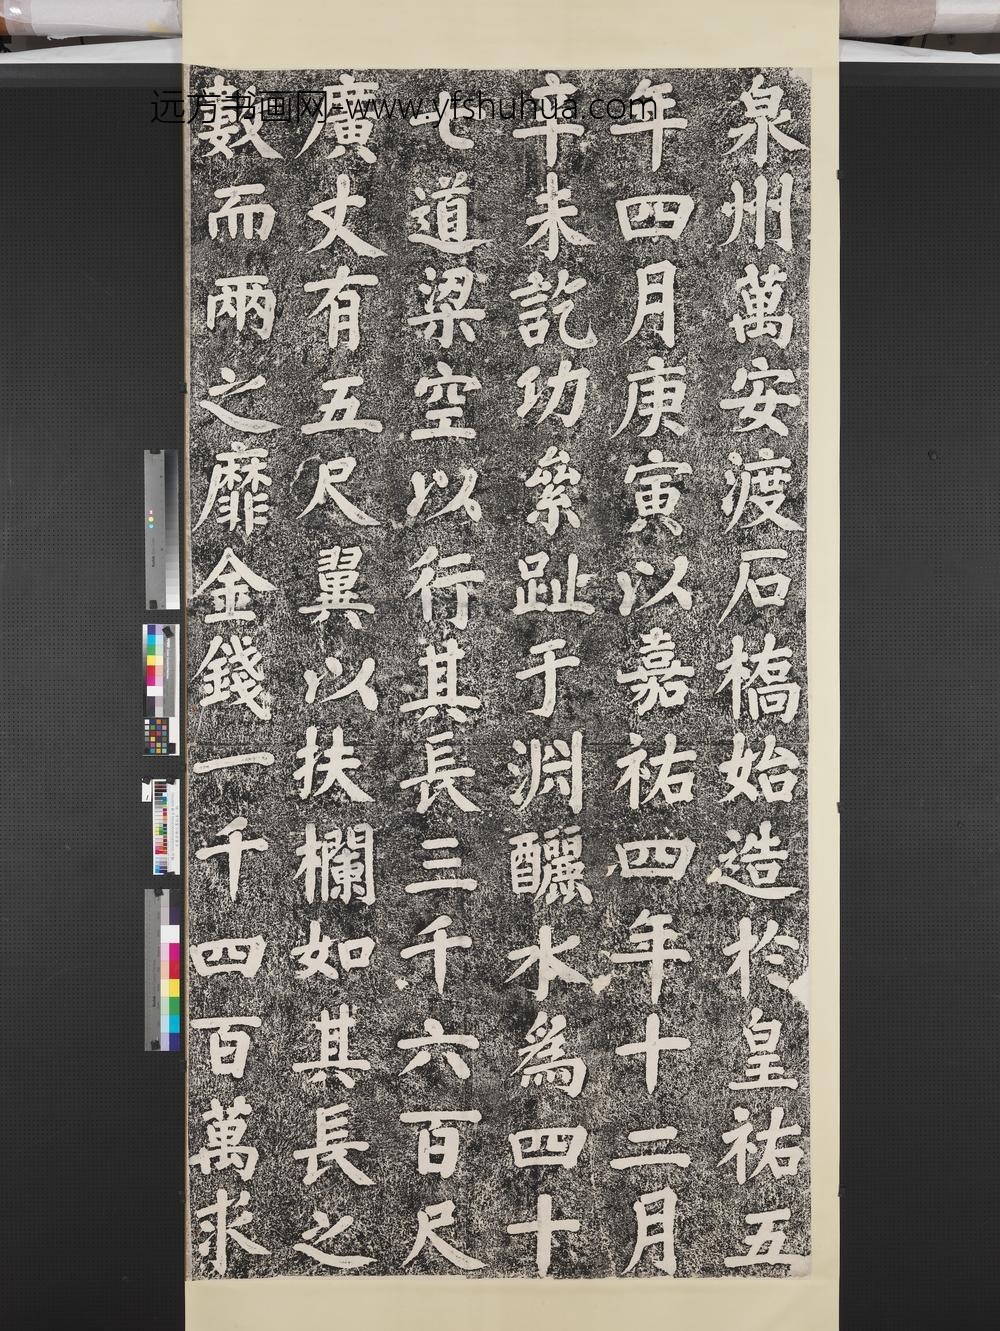 远方书画网-www.yfshuhua.com
泉州萬安渡石橋始造於皇祐五
年四月庚寅以嘉祐四年十二月
辛未訖功絫趾于淵釃水爲四十
七道梁空以行其長三千六百尺
廣丈有五尺翼以扶欄如其長之
數而兩之靡金錢一千四百萬求